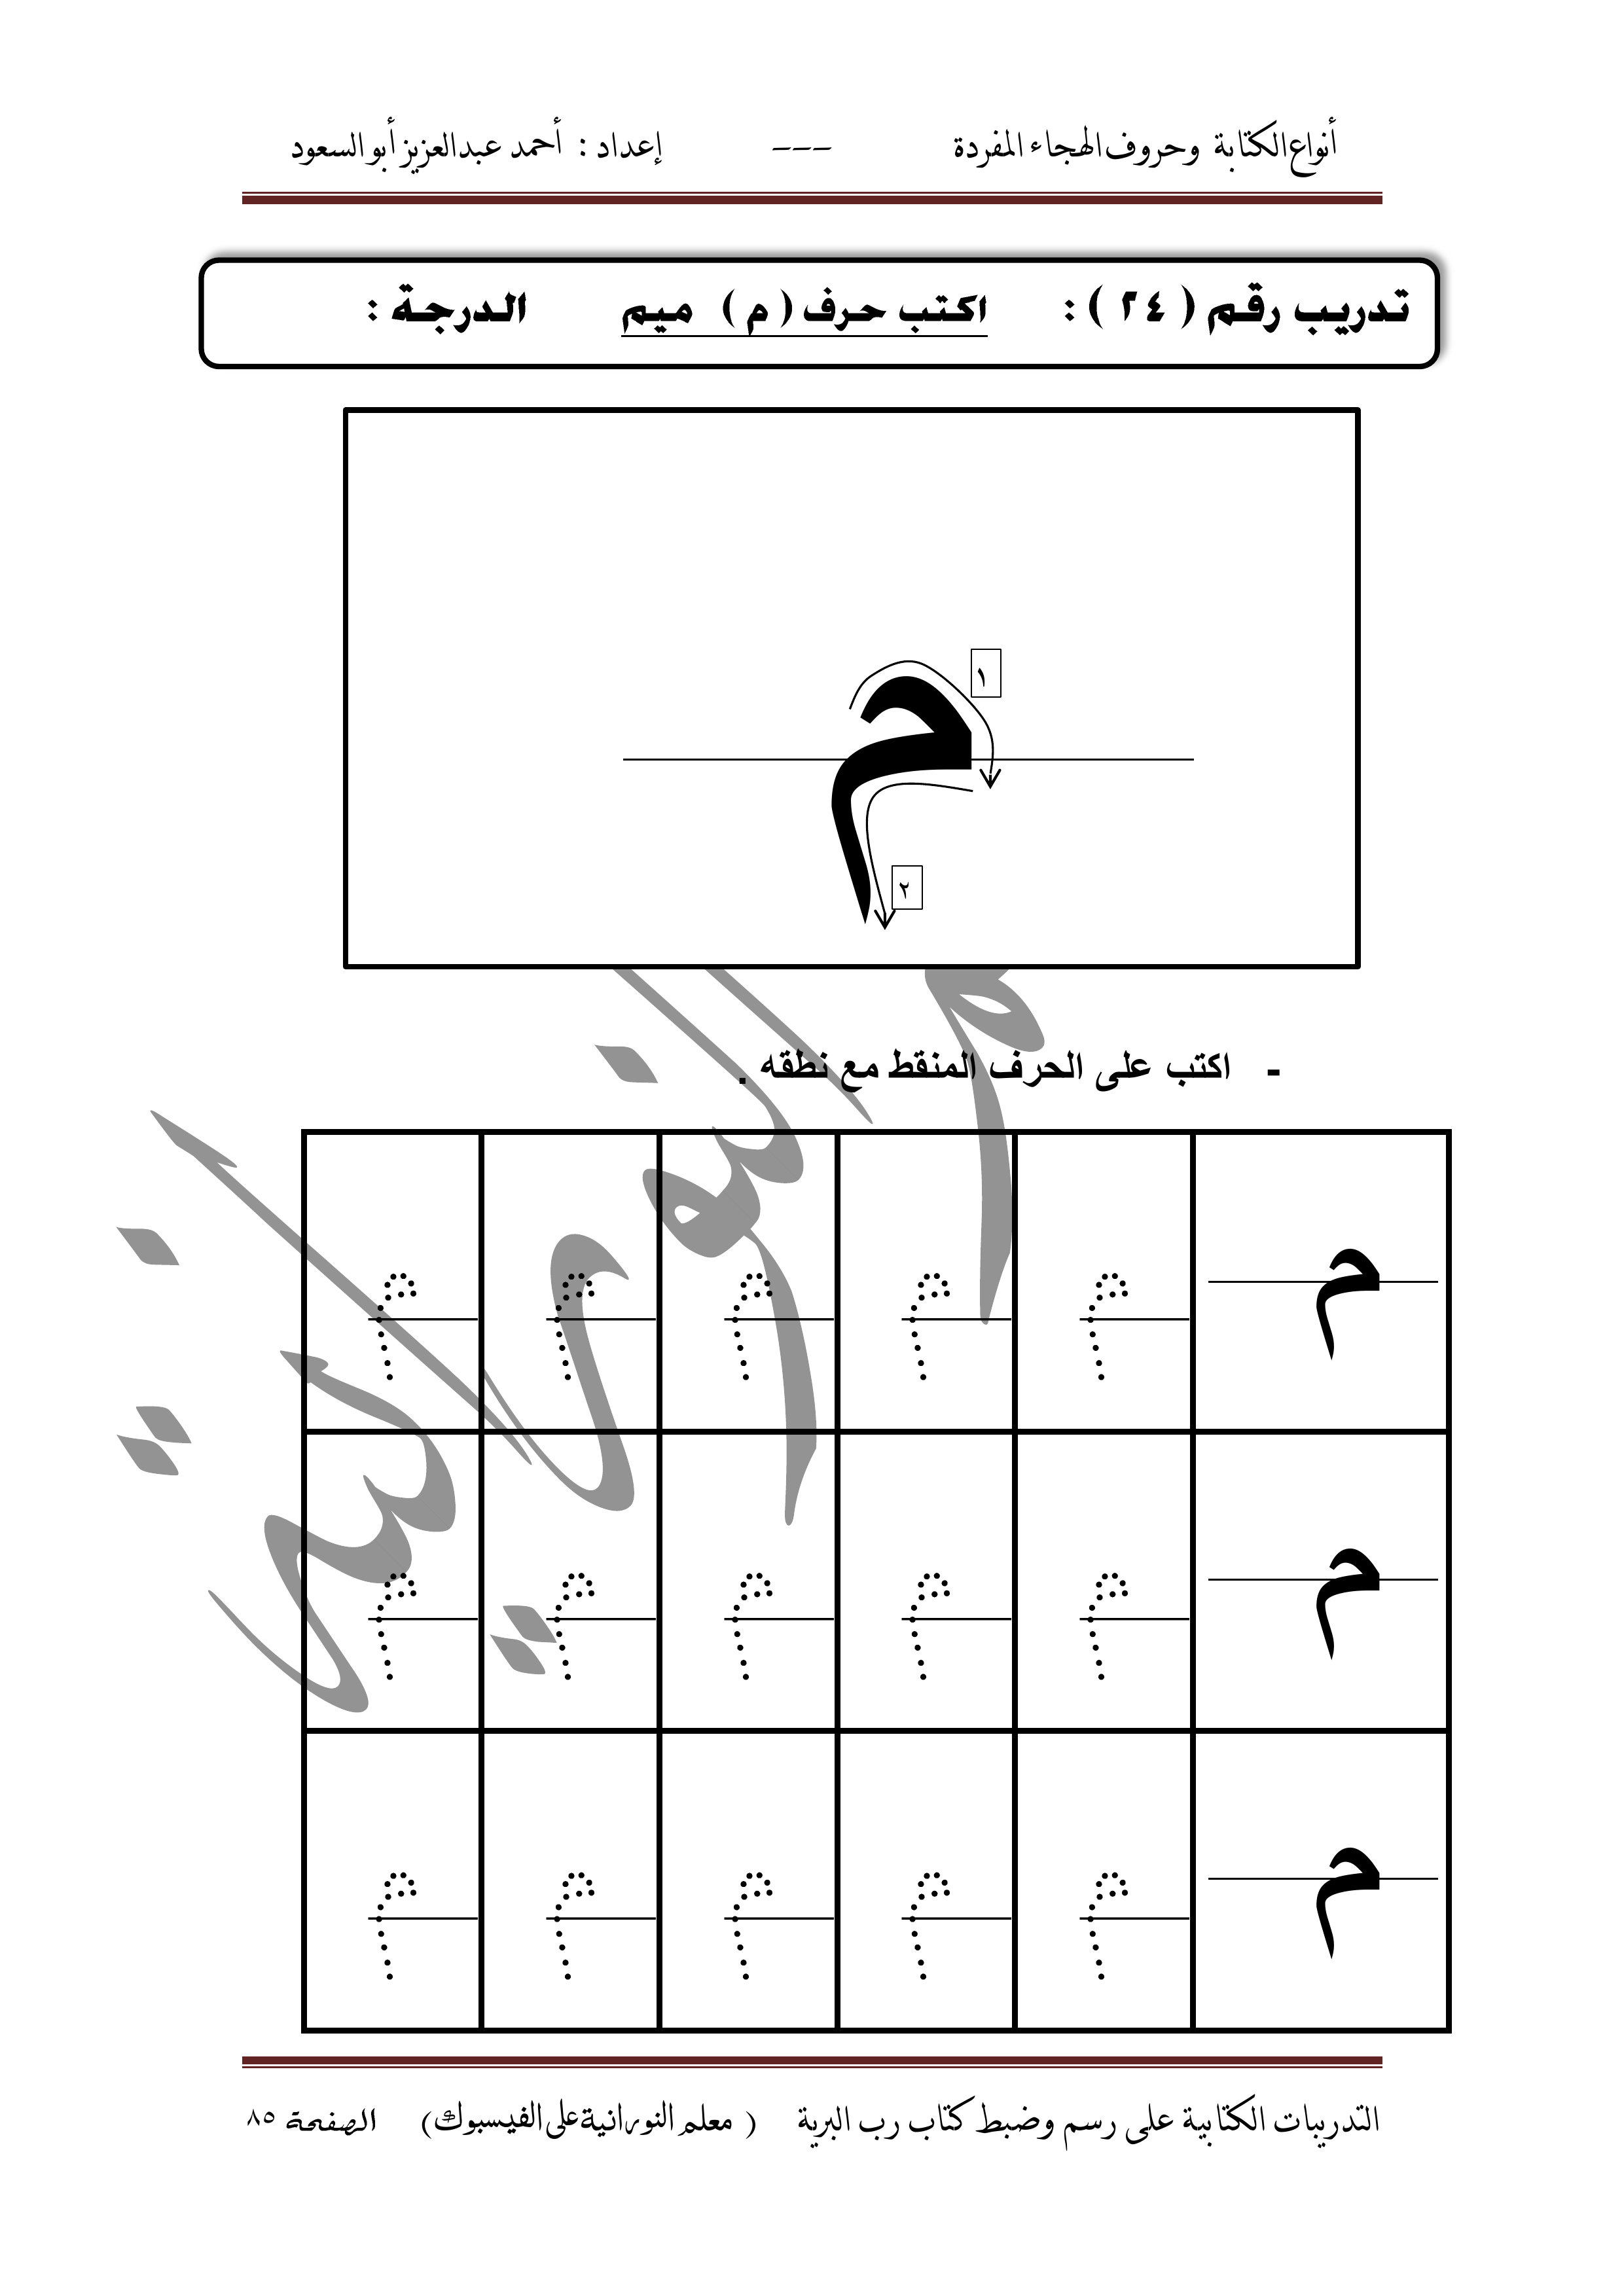 أنواع الكتابة وحروف الهجاء المفردة --- إعداد : أحمد عبدالعزيز أبو السعود
تدريب رقم ( ٢٤ ) : اكتب حرف ( م ) ميم الدرجة :
١
م
٢
- اكتب على الحرف المنقط مع نطقه .
م م م م م م
م م م م م م
م م م م م م
التدريبات الكتابية على رسم وضبط كتاب رب البرية ( معلم النورانية على الفيسبوك ) الصفحة ٨٥